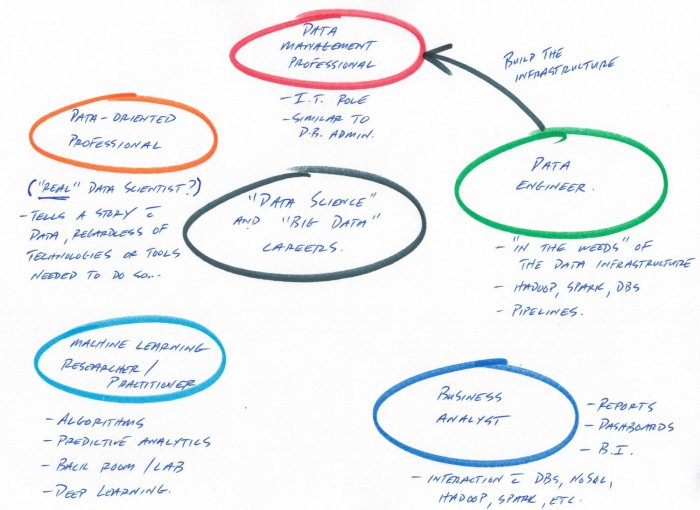 DATA
MANAGEMENT
PROFESSIONAL
- I.T. ROLE
- SIMILAR TO
D.B. ADMIN.
BUILD THE
INFRASTRUCTURE
DATA-ORIENTED
PROFESSIONAL
("REAL" DATA SCIENTIST?)
- TELLS A STORY c̄
DATA, REGARDLESS OF
TECHNOLOGIES OR TOOLS
NEEDED TO DO SO...
"DATA SCIENCE"
AND "BIG DATA"
CAREERS.
DATA
ENGINEER.
- "IN THE WEEDS" OF
THE DATA INFRASTRUCTURE
- HADOOP, SPARK, DBS
- PIPELINES.
MACHINE LEARNING
RESEARCHER/
PRACTITIONER
- ALGORITHMS
- PREDICTIVE ANALYTICS
- BACK ROOM/LAB
- DEEP LEARNING.
BUSINESS
ANALYST
- REPORTS
- DASHBOARDS
- B.I.
- INTERACTION c̄ DBS, NOSQL,
HADOOP, SPARK, ETC.